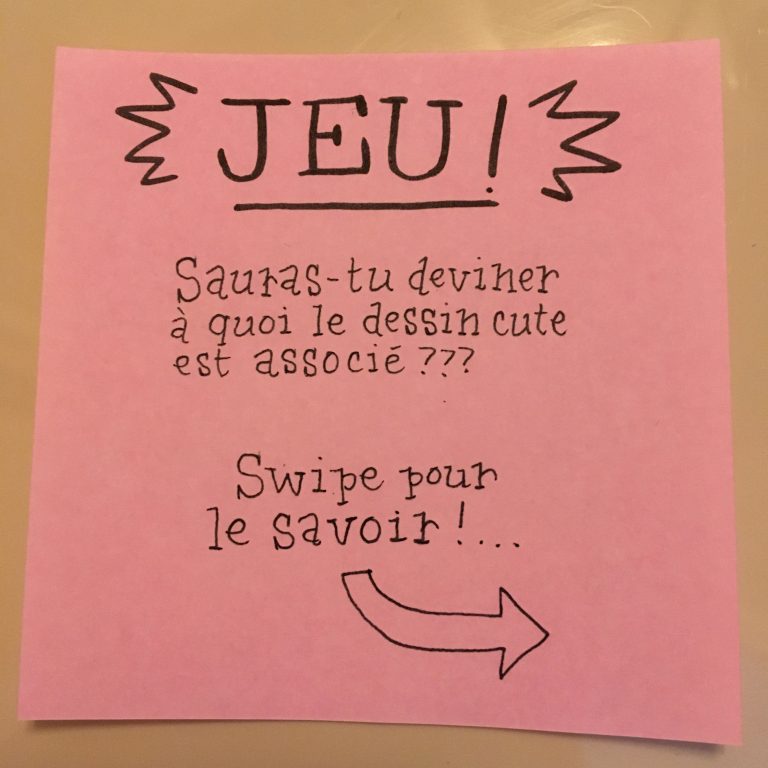 JEU!
Sauras-tu deviner
à quoi le dessin cute
est associé ???
Swipe pour
le savoir !...